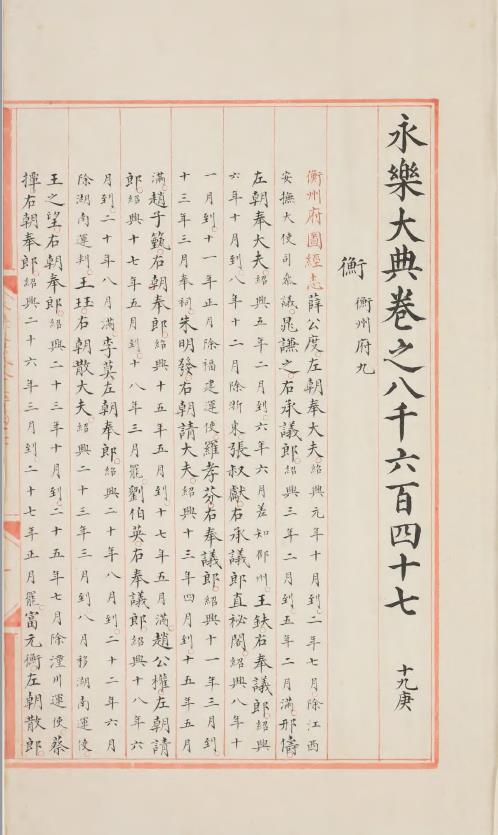 永樂大典卷之八千六百四十七 十九庚
衡 衡州府九
衡州府圖經志薛公度左朝奉大夫紹興元年十月到二年七月除江西
安撫大使司參議晁謙之右承議郎紹興三年二月到五年二月滿邢儔
左朝奉大夫紹興五年二月到六年六月差知邵州王鈇右奉議郎紹興
六年十月到八年十二月除浙東張叔獻右承議郎直祕閣紹興八年十
一月到十一年正月除福建運使羅孝芬右奉議郎紹興十一年三月到
十三年三月奉祠朱明發右朝請大夫紹興十三年四月到十五年五月
滿趙子範右朝奉郎紹興十五年五月到十七年五月滿趙公權左朝請
郎紹興十七年五月到十八年三月罷劉伯英右奉議郎紹興十八年六
月到二十年八月滿李莫左朝奉郎紹興二十年八月到二十二年六月
除湖南運判王珏右朝散大夫紹興二十三年三月到八月移湖南運使
王之望右朝奉郎紹興二十三年十月到二十五年七月除潼川運使蔡
撢右朝奉郎紹興二十六年三月到二十七年正月罷富元衡左朝散郎